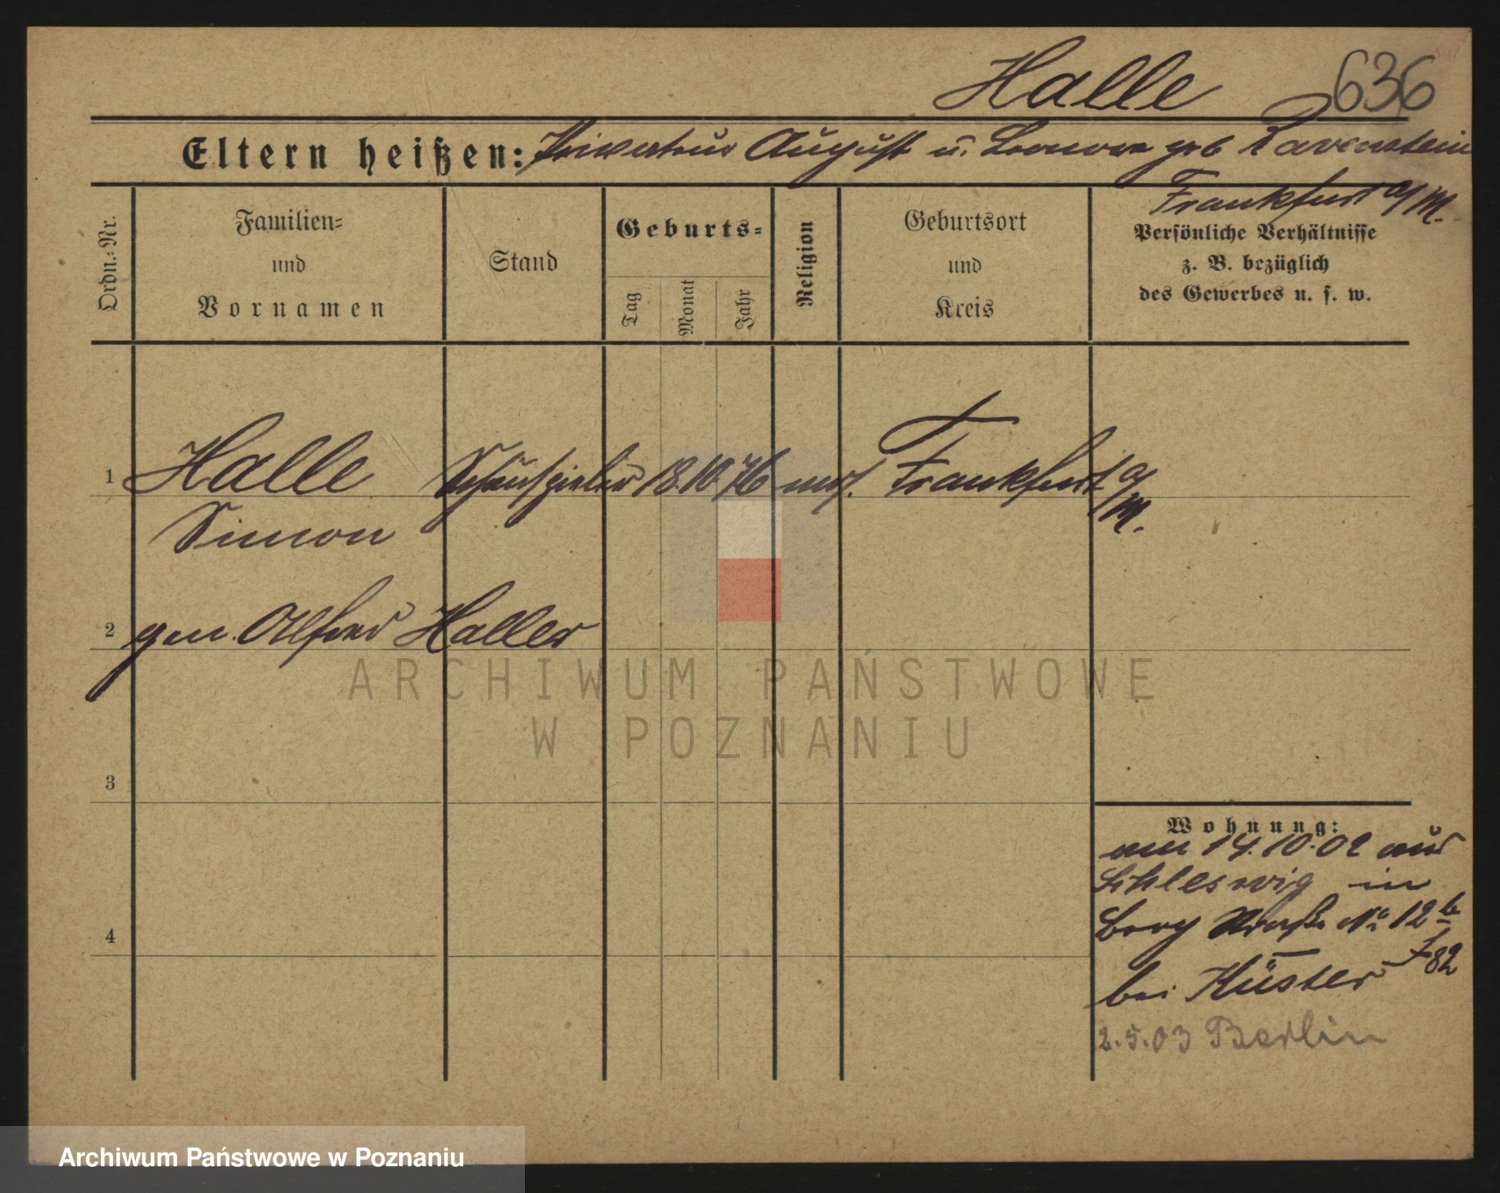 Halle 636
Eltern heißen: August u. Leonore geb Ravenstein
Frankfurt a/M.
Ordn.-Nr.
Familien-
und
Vornamen
Stand
Geburts-
Tag
Monat
Jahr
Religion
Geburtsort
und
Kreis
Persönliche Verhältnisse
z. B. bezüglich
des Gewerbes u. s. w.
1 Halle Schauspieler 18.10.76 mos. Frankfurt a/M.
Simon
2 gen. Alfred Haller
ARCHIWUM PAŃSTWOWE
W POZNANIU
3
Wohnung:
am 14.10.02 aus
Schleswig in
Berg Straße No 12b
bei Küster f82
2.5.03 Berlin
4
Archiwum Państwowe w Poznaniu